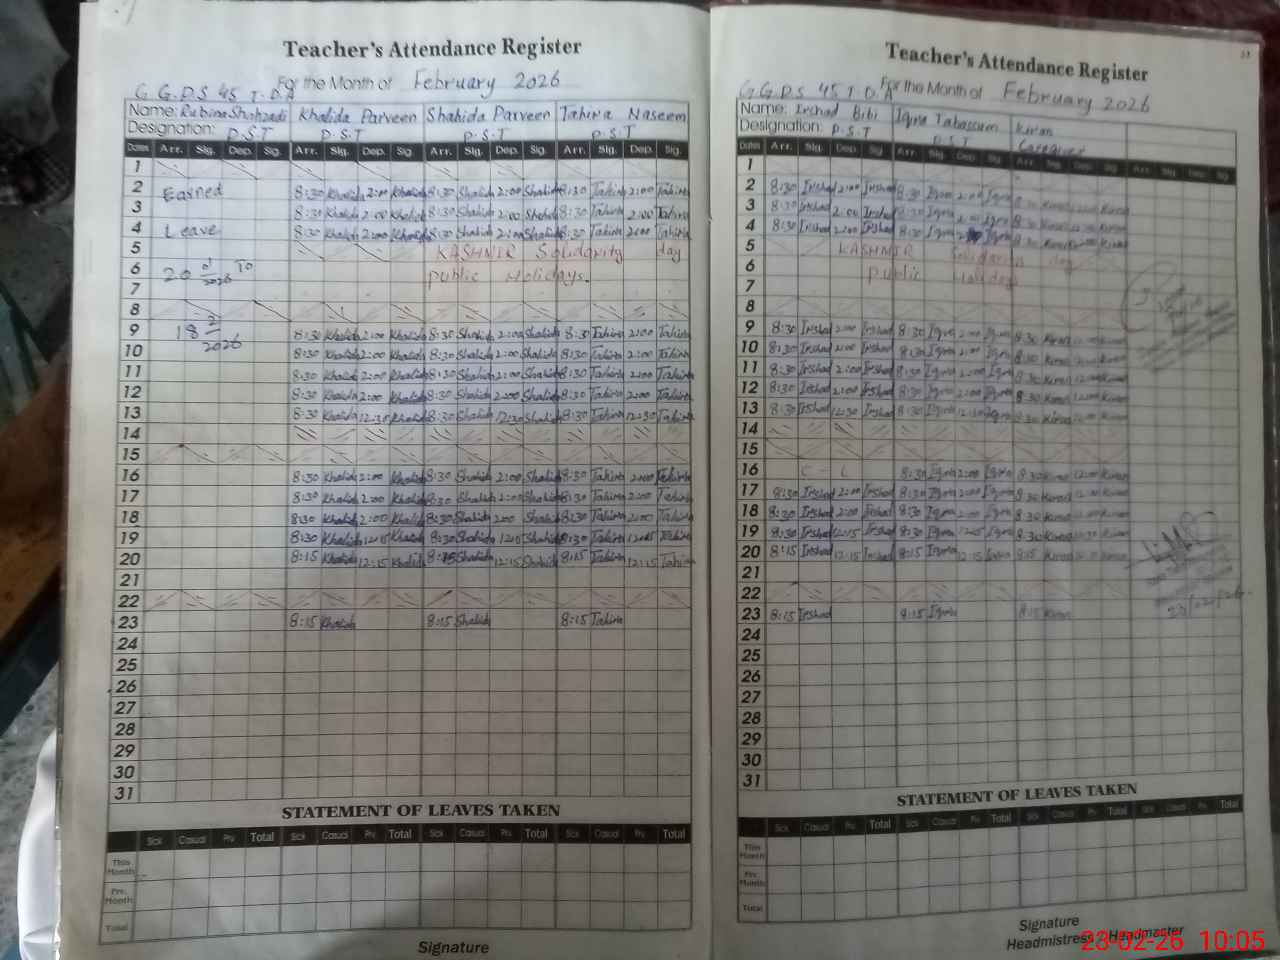 Teacher's Attendance Register
G.G.P.S 45 T.D.A For the Month of February 2026
Name: Rubina Shahzadi Khalida Parveen Shahida Parveen Tahira Naseem
Designation: P.S.T P.S.T P.S.T P.S.T
Dates Arr. Sig. Dep. Sig. Arr. Sig. Dep. Sig Arr. Sig. Dep. Sig. Arr. Sig. Dep. Sig.
1
2 Earned 8:30 Khalida 2:00 Khalida 8:30 Shahida 2:00 Shahida 8:30 Tahira 2:00 Tahira
3 8:30 Khalida 2:00 Khalida 8:30 Shahida 2:00 Shahida 8:30 Tahira 2:00 Tahira
4 Leave 8:30 Khalida 2:00 Khalida 8:30 Shahida 2:00 Shahida 8:30 Tahira 2:00 Tahira
5 KASHMIR Solidarity day
6 20 01/2026 To public Holidays.
7
8
9 18 2/2026 8:30 Khalida 2:00 Khalida 8:30 Shahida 2:00 Shahida 8:30 Tahira 2:00 Tahira
10 8:30 Khalida 2:00 Khalida 8:30 Shahida 2:00 Shahida 8:30 Tahira 2:00 Tahira
11 8:30 Khalida 2:00 Khalida 8:30 Shahida 2:00 Shahida 8:30 Tahira 2:00 Tahira
12 8:30 Khalida 2:00 Khalida 8:30 Shahida 2:00 Shahida 8:30 Tahira 2:00 Tahira
13 8:30 Khalida 12:30 Khalida 8:30 Shahida 12:30 Shahida 8:30 Tahira 12:30 Tahira
14
15
16 8:30 Khalida 2:00 Khalida 8:30 Shahida 2:00 Shahida 8:30 Tahira 2:00 Tahira
17 8:30 Khalida 2:00 Khalida 8:30 Shahida 2:00 Shahida 8:30 Tahira 2:00 Tahira
18 8:30 Khalida 2:00 Khalida 8:30 Shahida 2:00 Shahida 8:30 Tahira 2:00 Tahira
19 8:30 Khalida 12:15 Khalida 8:30 Shahida 12:15 Shahida 8:30 Tahira 12:15 Tahira
20 8:15 Khalida 12:15 Khalida 8:15 Shahida 12:15 Shahida 8:15 Tahira 12:15 Tahira
21
22
23 8:15 Khalida 8:15 Shahida 8:15 Tahira
24
25
26
27
28
29
30
31
STATEMENT OF LEAVES TAKEN
Sick Casual Prv. Total Sick Casual Prv. Total Sick Casual Prv. Total Sick Casual Prv. Total
This Month
Prv. Month
Total
Signature
Teacher's Attendance Register
G.G.P.S 45 T.D.A For the Month of February 2026
Name: Irshad Bibi Iqra Tabassum Kiran
Designation: P.S.T P.S.T Caregiver
Dates Arr. Sig. Dep. Sig Arr. Sig. Dep Sig. Arr. Sig. Dep. Sig. Arr. Sig. Dep. Sig.
1
2 8:30 Irshad 2:00 Irshad 8:30 Iqra 2:00 Iqra
3 8:30 Irshad 2:00 Irshad 8:30 Iqra 2:00 Iqra 8:30 Kiran Kiran
4 8:30 Irshad 2:00 Irshad 8:30 Iqra Iqra 8:30 Kiran Kiran
5 KASHMIR Solidarity day
6 public Holidays
7
8
9 8:30 Irshad 2:00 Irshad 8:30 Iqra 2:00 Iqra 8:30 Kiran Kiran
10 8:30 Irshad 2:00 Irshad 8:30 Iqra 2:00 Iqra 8:30 Kiran Kiran
11 8:30 Irshad 2:00 Irshad 8:30 Iqra 2:00 Iqra 8:30 Kiran Kiran
12 8:30 Irshad 2:00 Irshad 8:30 Iqra 2:00 Iqra 8:30 Kiran 12:00 Kiran
13 8:30 Irshad 12:30 Irshad 8:30 Iqra 12:30 Iqra 8:30 Kiran Kiran
14
15
16 C - L 8:30 Iqra 2:00 Iqra 8:30 Kiran 12:00 Kiran
17 8:30 Irshad 2:00 Irshad 8:30 Iqra 2:00 Iqra 8:30 Kiran Kiran
18 8:30 Irshad 2:00 Irshad 8:30 Iqra 2:00 Iqra 8:30 Kiran Kiran
19 8:30 Irshad 12:15 Irshad 8:30 Iqra 12:15 Iqra 8:30 Kiran Kiran
20 8:15 Irshad 12:15 Irshad 8:15 Iqra 12:15 Iqra 8:15 Kiran Kiran
21
22
23 8:15 Irshad 8:15 Iqra 8:15 Kiran
23/02/26
24
25
26
27
28
29
30
31
STATEMENT OF LEAVES TAKEN
Sick Casual Prv. Total Sick Casual Prv. Total Sick Casual Prv. Total Sick Casual Prv. Total
This Month
Prv. Month
Total
Signature
Headmistress / Headmaster
23-02-26 10:05